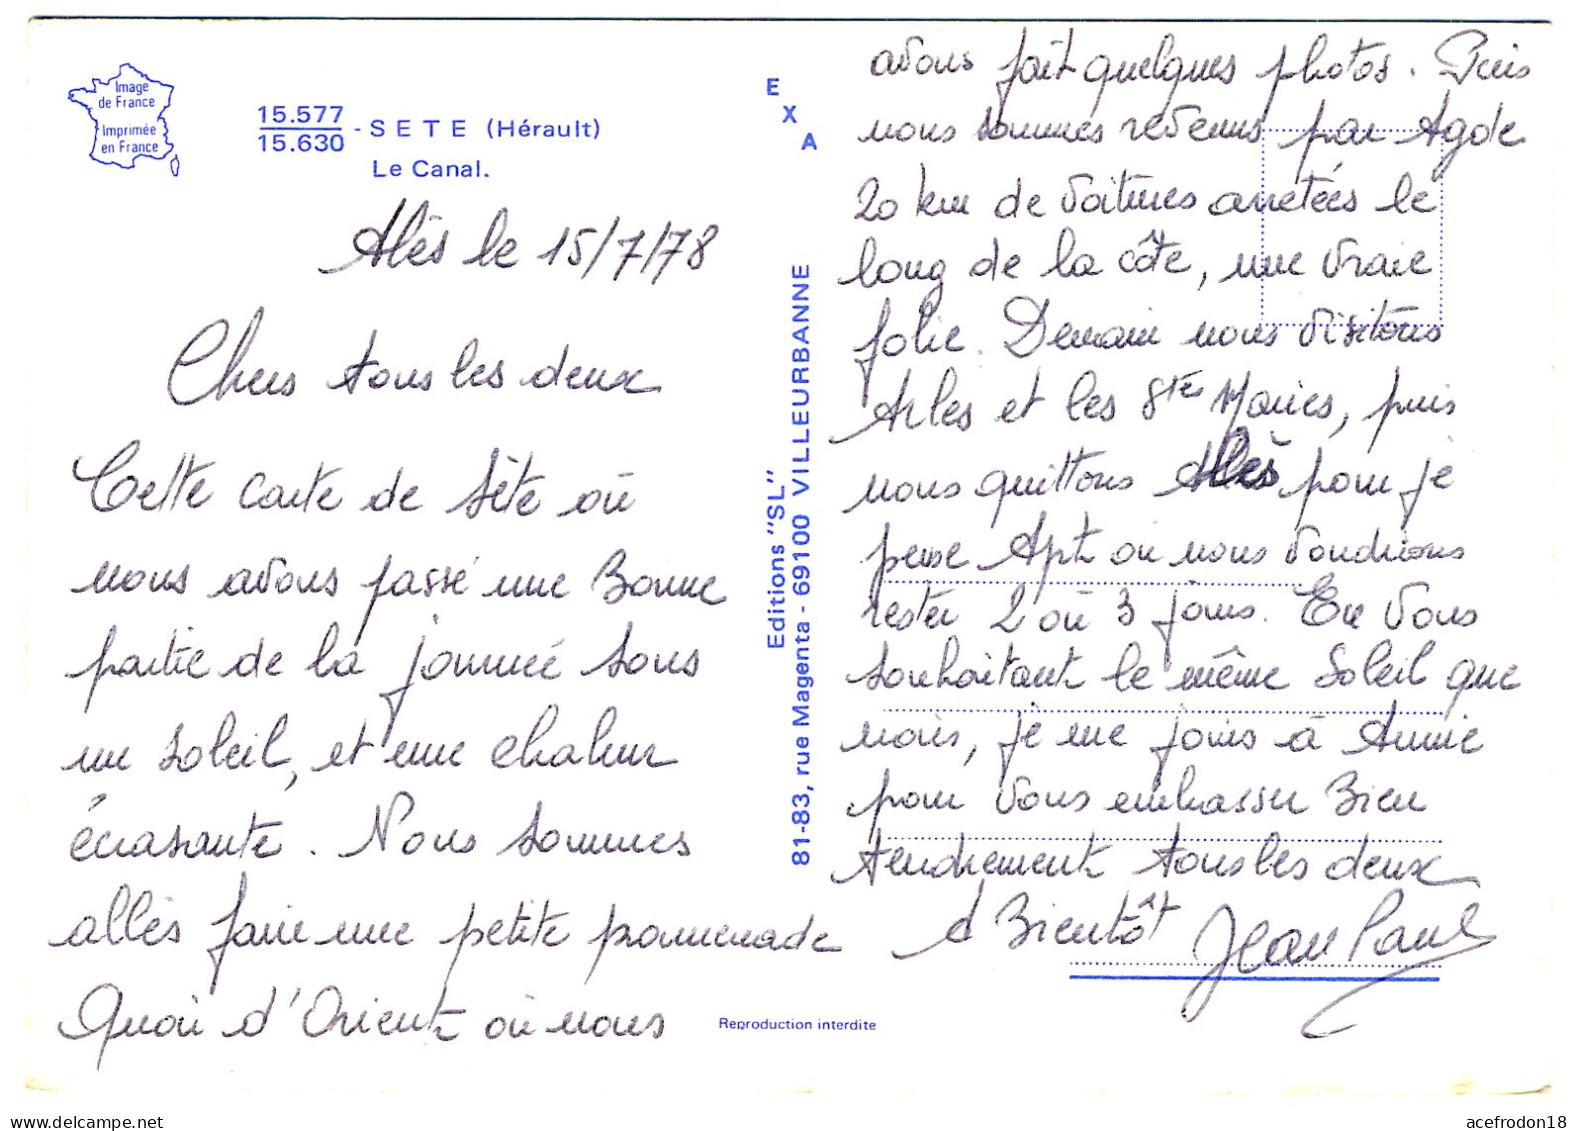 Image
de France
Imprimée
en France
15.577
15.630 - SETE (Hérault)
Le Canal.
Alès le 15/7/78
Chers tous les deux
Cette carte de Sète où
nous avons passé une Bonne
partie de la journée sous
un soleil, et une chaleur
écrasante. Nous sommes
allés faire une petite promenade
Quai d'Orient où nous
EXA
Editions "SL"
81-83, rue Magenta - 69100 VILLEURBANNE
Reproduction interdite
avons fait quelques photos. Puis
nous sommes revenus par Agde
20 km de voitures arretées le
long de la côte, une vraie
folie. Demain nous visitons
Arles et les Stes Maries, puis
nous quittons Alès pour je
pense Apt où nous voudrions
rester 2 ou 3 jours. En vous
souhaitant le même soleil que
nous, je me joins à Annie
pour vous embrasser Bien
tendrement tous les deux
A Bientôt Jean Paul
acefrodon18